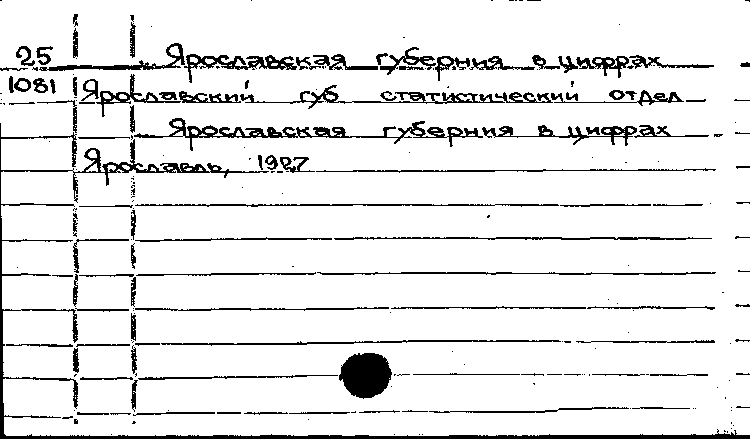 25 Ярославская губерния в цифрах
1081 Ярославский губ статистический отдел
Ярославская губерния в цифрах
Ярославль, 1927